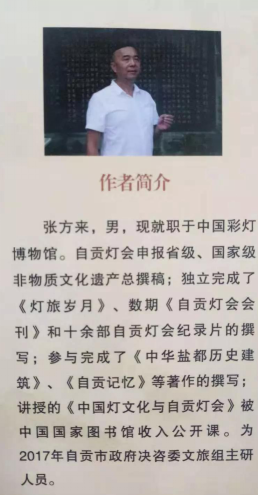 作者简介
张方来，男，现就职于中国彩灯
博物馆。自贡灯会申报省级、国家级
非物质文化遗产总撰稿；独立完成了
《灯旅岁月》、数期《自贡灯会会
刊》和十余部自贡灯会纪录片的撰
写；参与完成了《中华盐都历史建
筑》、《自贡记忆》等著作的撰写；
讲授的《中国灯文化与自贡灯会》被
中国国家图书馆收入公开课。为
2017年自贡市政府决咨委文旅组主研
人员。